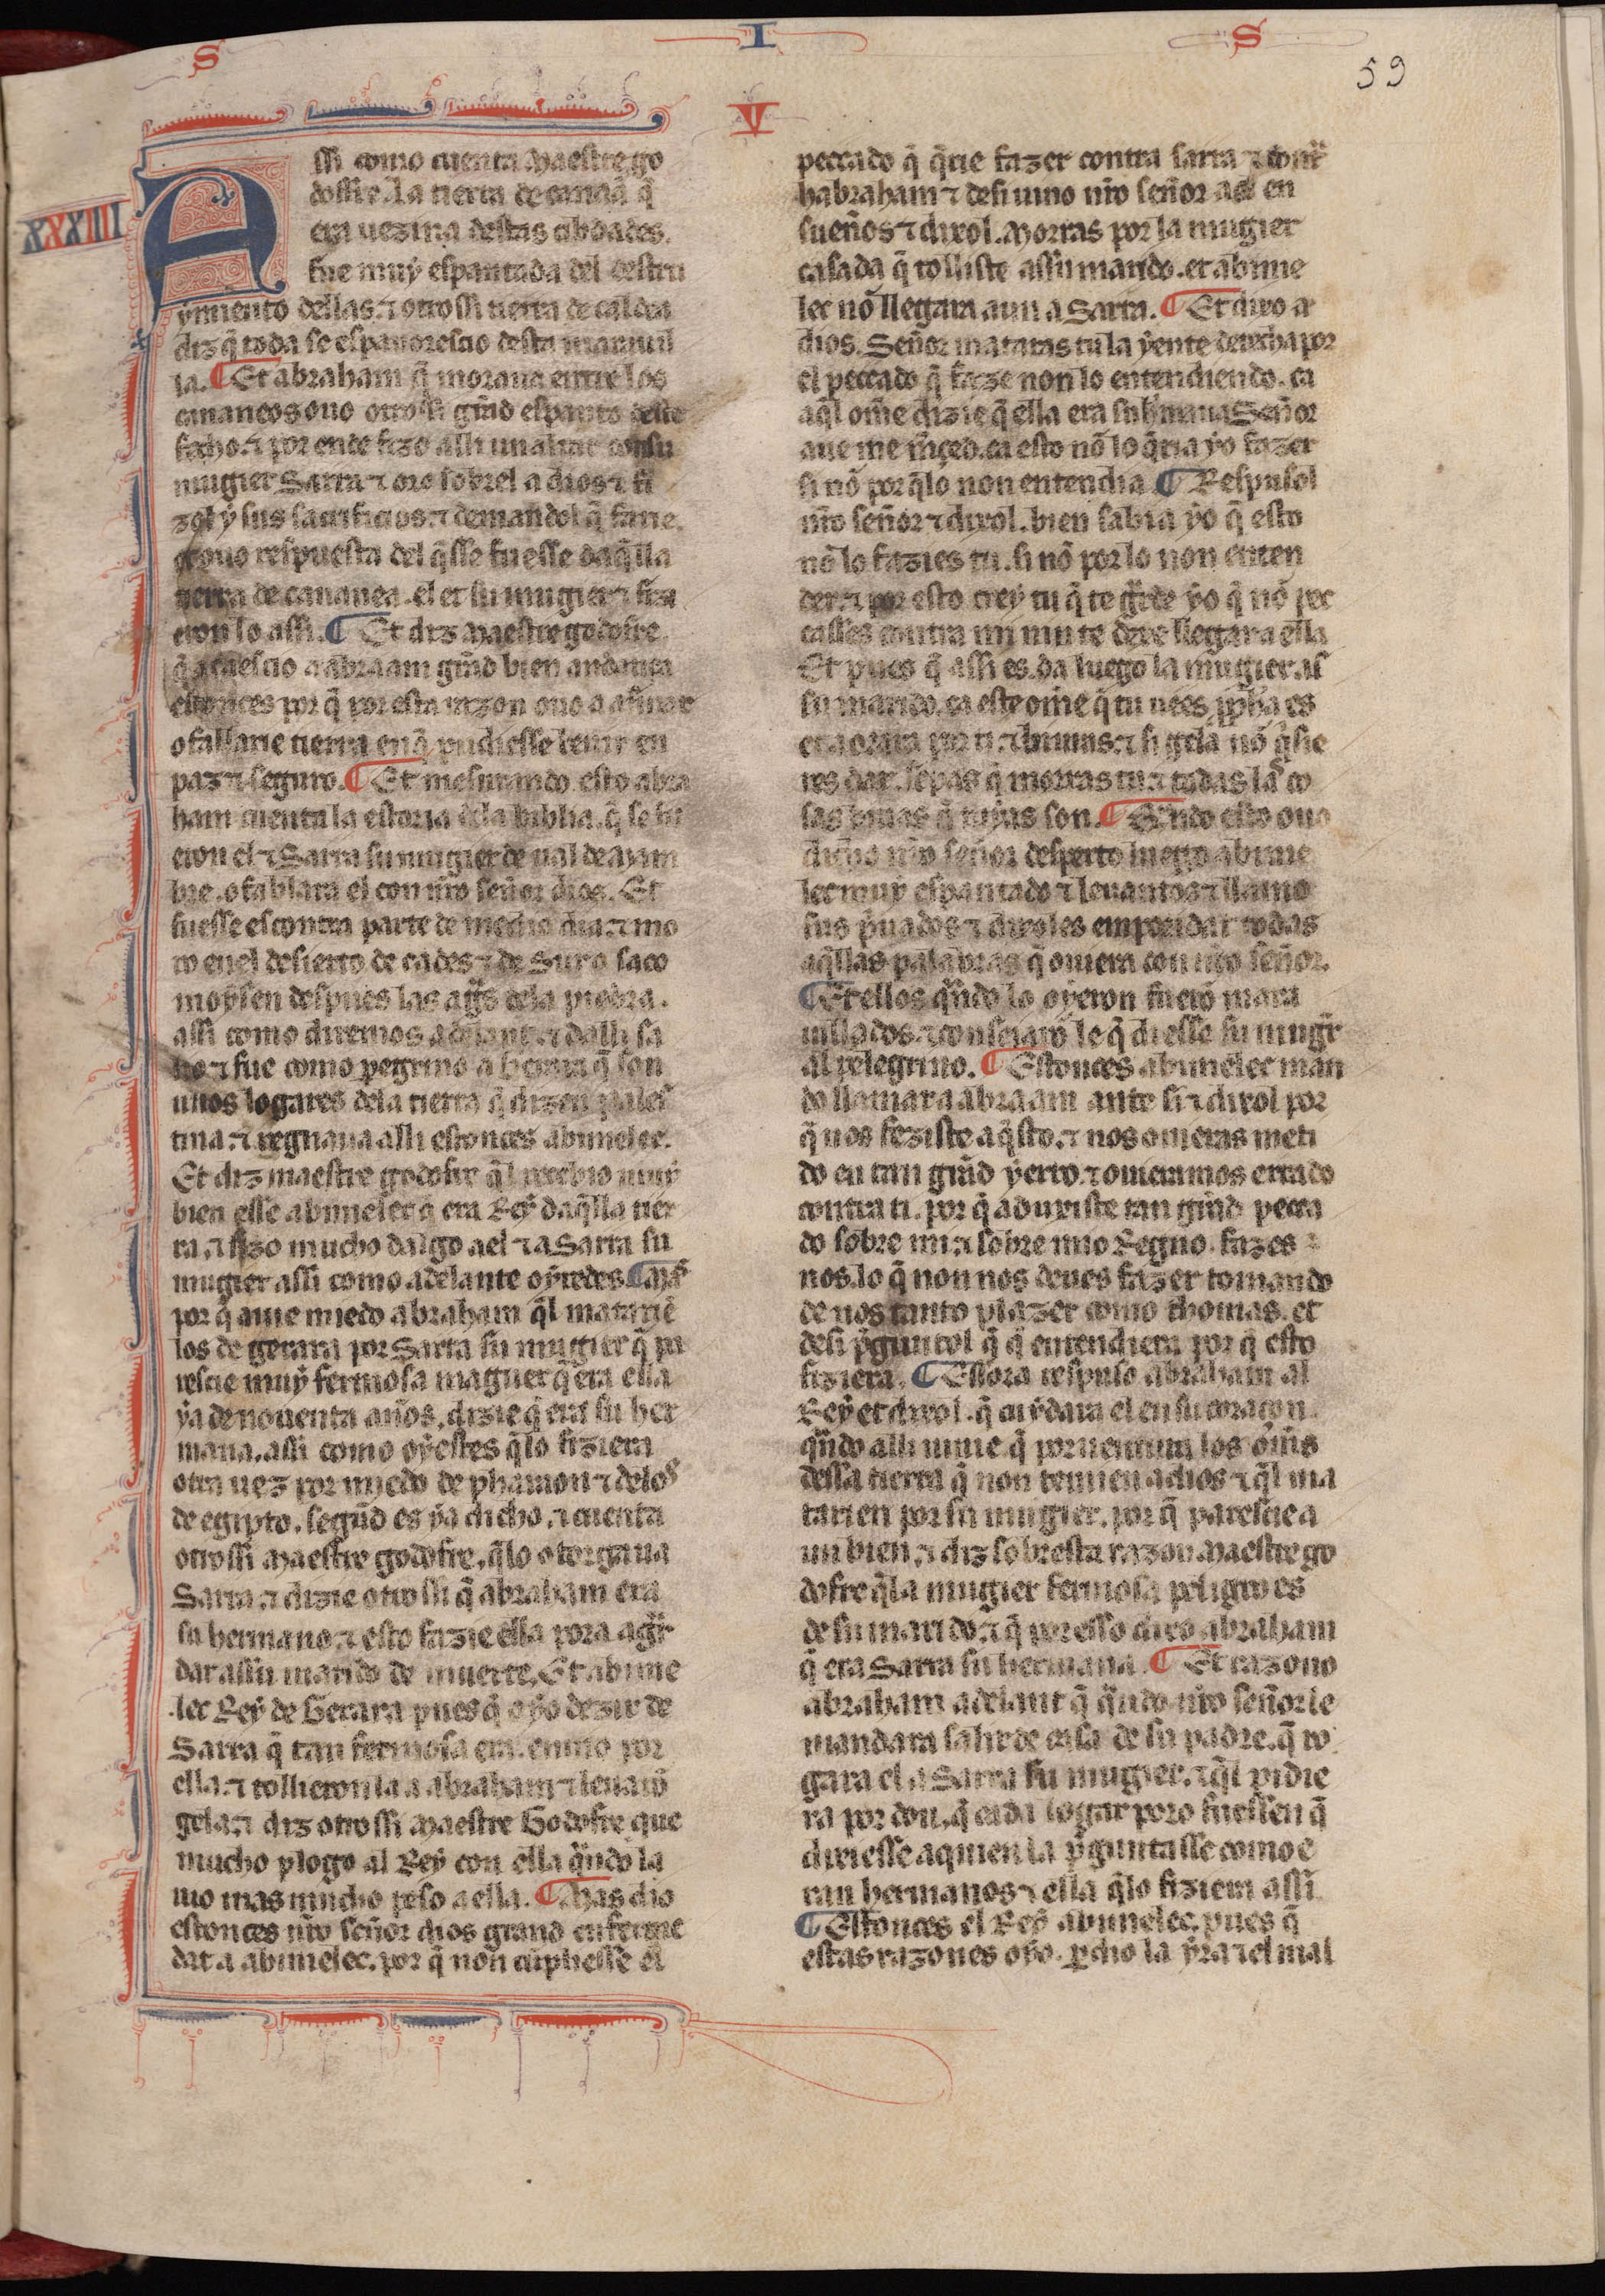 S I S
59
V
XXXIIII
Assi como cuenta Maestre go
dofre. la tierra de cananea q̃
era uezina destas cibdades.
fue muẏ espantada del destru
ẏmiento dellas. ⁊ otrossi tierra de caldea
diz q̃ toda se espauorescio desta marauil
la. ¶ Et abraham q̃ moraua entre los
cananeos ouo otrossi grãd espanto deste
fecho. ⁊ por ende fizo alli un altar con su
mugier Sarra ⁊ oro sobrel a dios ⁊ fi
zol ẏ sus sacrificios. ⁊ demandol q̃ farie.
⁊ ouo respuesta del q̃sse fuesse daq̃lla
tierra de cananea. el et su mugier ⁊ fizi
eron lo assi. ¶ Et diz Maestre godofre
q̃ acaescio a abraam grãd bien andança
estonces por q̃ por esta razon ouo a
o fallarie tierra en q̃ pudiesse beuir en
paz ⁊ seguro. ¶ Et mesurando esto abra
ham cuenta la estoria dela biblia. q̃ se fu
eron el ⁊ Sarra su mugier de ual de Mam
bre. o fablara el con nr̃o señor dios. Et
fuesse escontra parte de medio dia. ⁊ mo
ro enel desierto de cades ⁊ de Sur o saco
moẏsen despues las aguas dela piedra.
assi como diremos adelante. ⁊ dalli sa
lio ⁊ fue como pegrino a Gerara q̃ son
unos logares dela tierra q̃ dizen pales
tina. ⁊ regnaua alli estonces abimelec.
Et diz maestre godofre q̃l recibio muẏ
bien esse abimelec q̃ era Reẏ daq̃lla tier
ra. ⁊ fizo mucho dalgo a el ⁊ a Sarra su
mugier assi como adelante oẏredes. ¶ Mas
por q̃ auie miedo abraham q̃l matariẽ
los de gerara por Sarra su mugier q̃ pa
rescie muẏ fermosa maguer q̃ era ella
ẏa de nouenta años. dizie q̃ era su her
mana. assi como oẏestes q̃lo fiziera
otra uez por miedo de pharaon ⁊ delos
de egipto. segũd es ẏa dicho. ⁊ cuenta
otrossi Maestre godofre. q̃lo otorgaua
Sarra. ⁊ dizie otrossi q̃ abraham era
su hermano. ⁊ esto fazie ella pora agr̃
dar assu marido de muerte. Et abime
lec Reẏ de Gerara pues q̃ oẏo dezir de
Sarra q̃ tan fermosa era. enuio por
ella. ⁊ tollieron la a abraham ⁊ leuarõ
gela. ⁊ diz otrossi Maestre Godofre que
mucho plogo al Reẏ con ella q̃ndo la
uio mas mucho peso a ella. ¶ Mas dio
estonces nr̃o señor dios grand enferme
dat a abimelec. por q̃ non cũpliesse el
peccado q̃ q̃rie fazer contra sarra ⁊ contr̃
habraham ⁊ desi uino nr̃o señor a el en
sueños ⁊ dixol. Morras por la mugier
casada q̃ tolliste assu marido. et abime
lec nõ llegara aun a Sarra. ¶ Et dixo a
dios. Señor mataras tu la ẏente derecha por
el peccado q̃ faze non lo entendiendo. ca
aq̃l om̃e dizie q̃ ella era su hermana Señor
aue me m̃ced. ca esto nõ lo q̃ria ẏo fazer
si nõ por q̃lo non entendia. ¶ Respusol
nr̃o señor ⁊ dixol. bien sabia ẏo q̃ esto
nõ lo fazies tu. si nõ por lo non enten
der. ⁊ por esto creẏ tu q̃ te gr̃de ẏo q̃ nõ pec
casses contra mi ni te dexe llegar a ella
Et pues q̃ assi es. da luego la mugier. a
su marido. ca este om̃e q̃ tu uees. ꝓph̃a es
et aorara por ti. ⁊ biuras. ⁊ si gela nõ q̃sie
res dar. sepas q̃ morras tu ⁊ todas las co
sas biuas q̃ tuẏas son. ¶ Q̃ndo esto ouo
dicho nr̃o señor desperto luego abime
lec muẏ espantado ⁊ leuantos ⁊ llamo
sus p̃uados ⁊ dixoles emporidat todas
aq̃llas palabras q̃ ouiera con nr̃o señor.
¶ Et ellos q̃ndo lo oẏeron fuerõ mara
uillados. ⁊ consejarõ le q̃ diesse su mugr̃
al pelegrino. ¶ Estonces abimelec man
do llamar a abraam ante si ⁊ dixol por
q̃ nos feziste aq̃sto. ⁊ nos ouieras meti
do en tan grãd ẏerro. ⁊ ouieramos errado
contra ti. por q̃ aduxiste tan grãd pecca
do sobre mi. ⁊ sobre mio Regno. fazes
nos. lo q̃ non nos deues fazer tomando
de nos tanto plazer como thomas. et
desi p̃guntol q̃ q̃ entendiera por q̃ esto
fiziera. ¶ Essora respuso abraham al
Reẏ et dixol. q̃ cuẏdara el en su coraçon.
q̃ndo alli uinie q̃ por uentura los om̃s
dessa tierra q̃ non temien a dios ⁊ q̃l ma
tarien por su mugier. por q̃ parescie a
un bien. ⁊ diz sobresta razon Maestre go
dofre q̃la mugier fermosa peligro es
de su marido. ⁊ q̃ por esso dixo abraham
q̃ era Sarra su hermana. ¶ Et razono
abraham adelant q̃ q̃ndo nr̃o señor le
mandara salir de casa de su padre. q̃ ro
gara el a Sarra su mugier. ⁊ q̃l pidie
ra por don. q̃ cada logar poro fuessen q̃
dixiesse a quien la p̃guntasse como e
ran hermanos ⁊ ella q̃lo fiziera assi.
¶ Estonces el Reẏ abimelec. pues q̃
estas razones oẏo. ꝑdio la ẏra ⁊ el mal